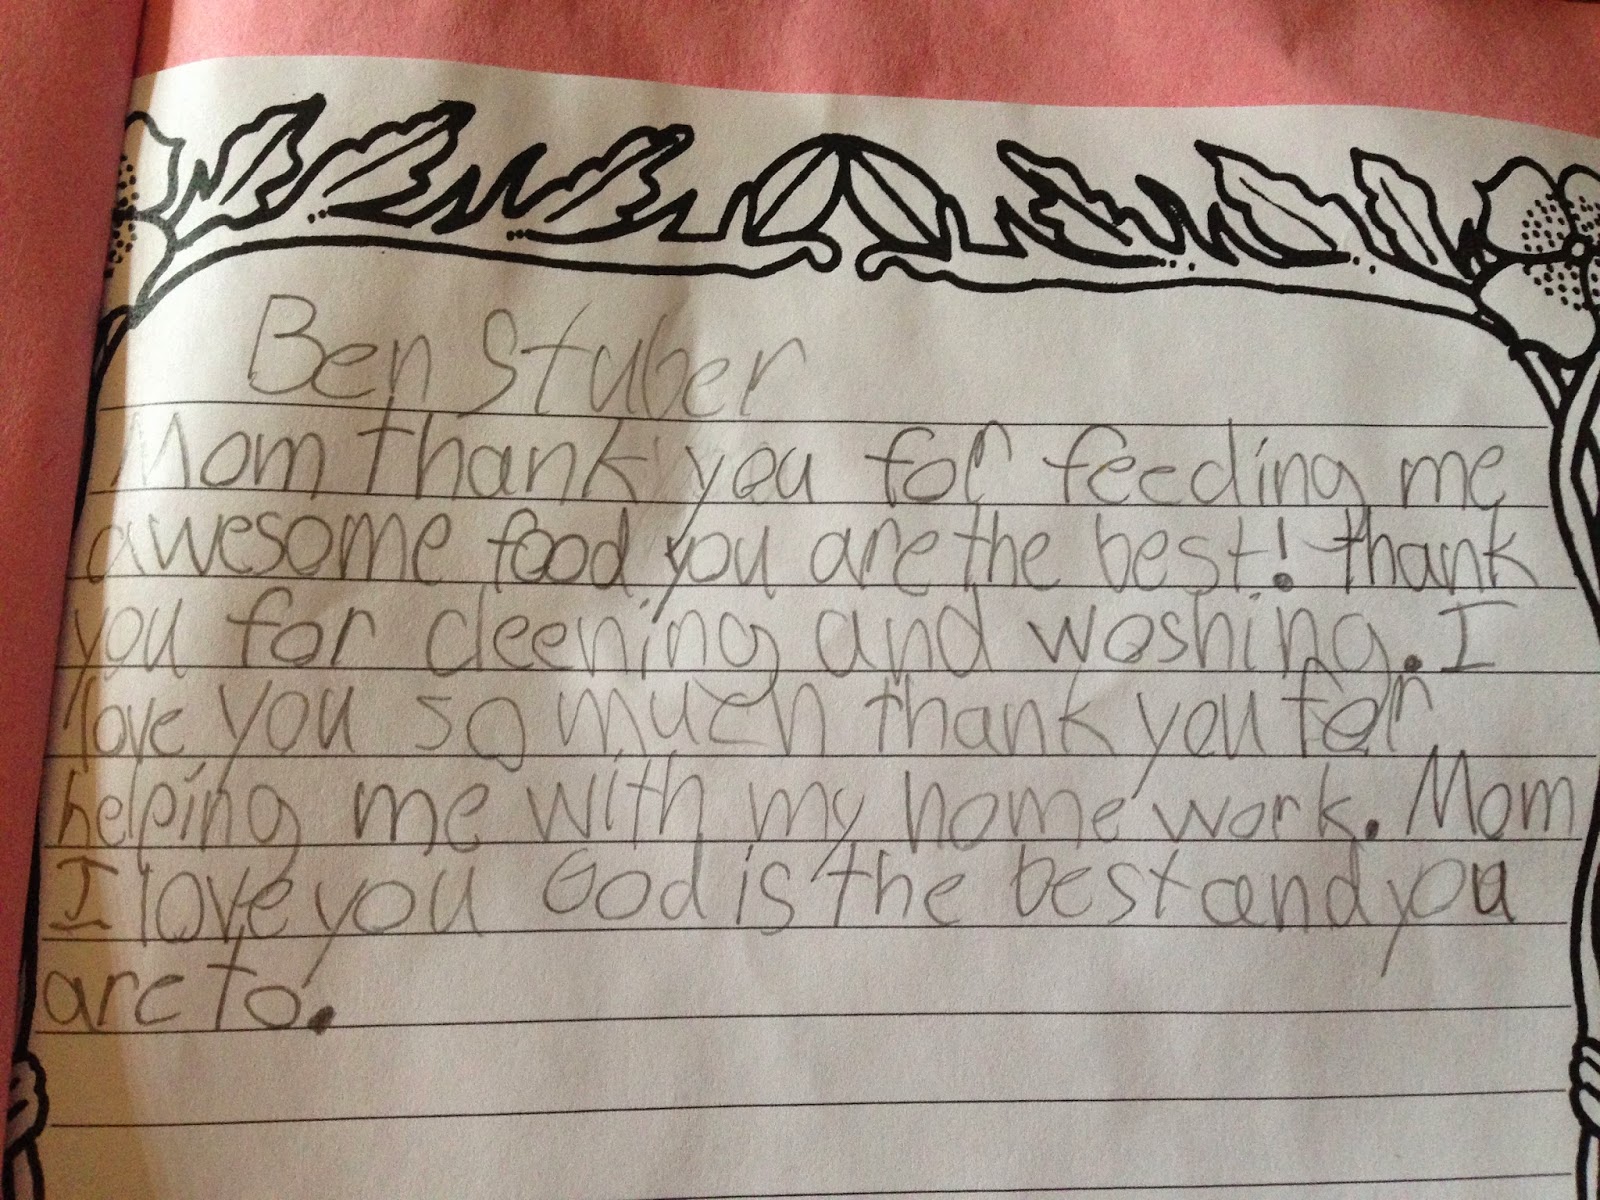 Ben Stuber
Mom thank you for feeding me
awesome food you are the best! thank
you for cleening and woshing. I
love you so much thank you for
helping me with my home work. Mom
I love you God is the best and you
are to.